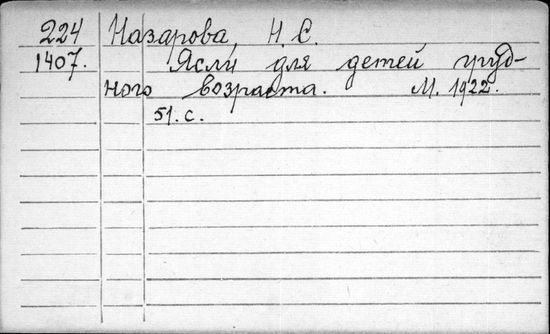 224 Назарова, Н. С.
1407. Ясли для детей груд-
ного возраста. М. 1922.
51. с.